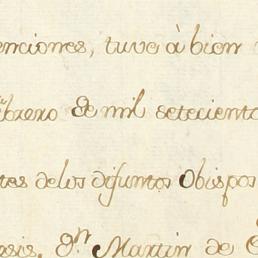 enciones, tuve à bien
brero de mil setecient
tes delos difuntos Obispos
Dn Martin de